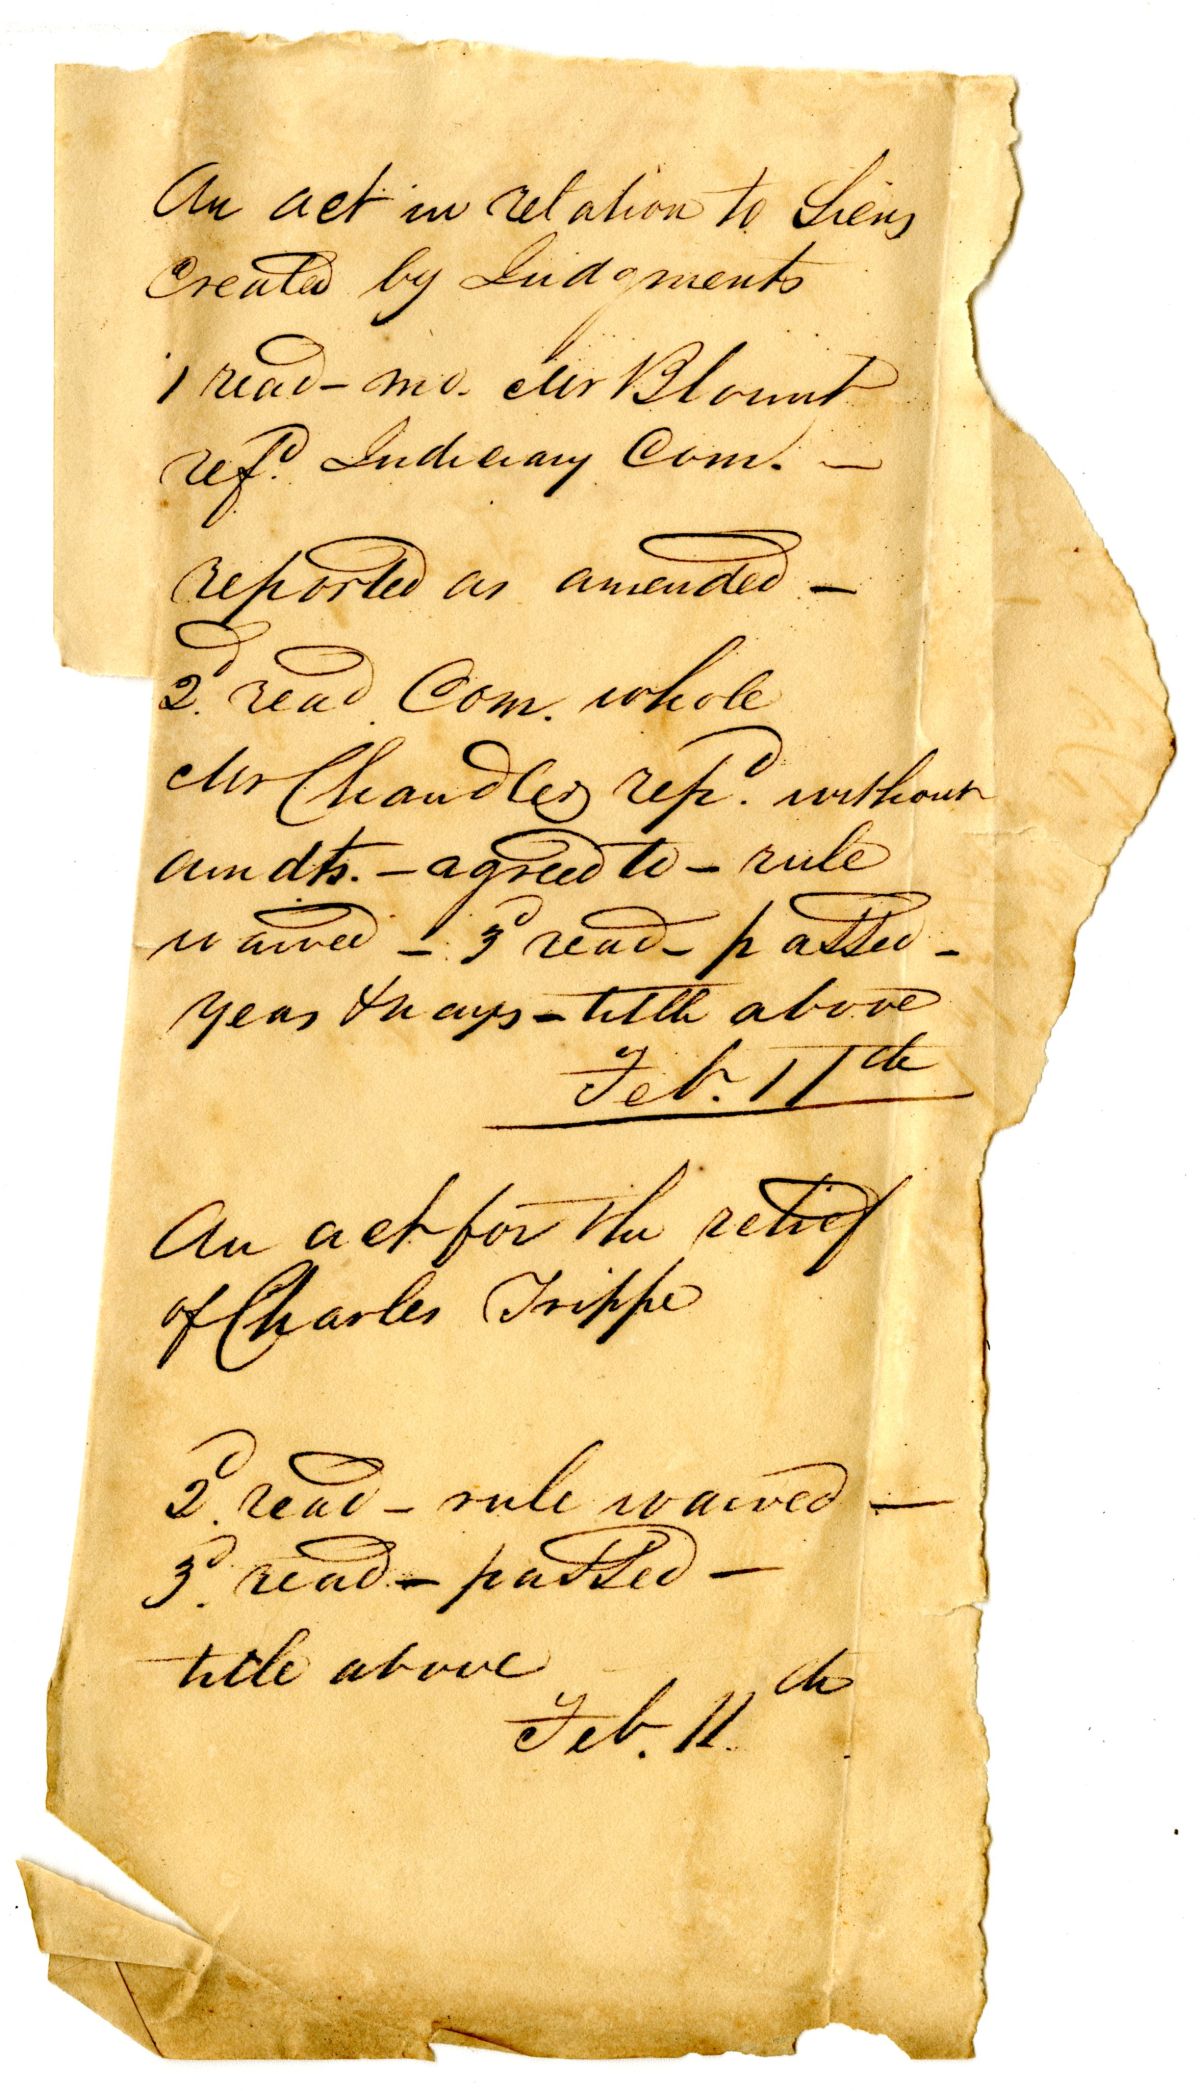 An act in relation to Liens
Created by Judgments
1 read – mo. Mr Blount
refd. Judiciary Com. –
reported as amended –
2d. read Com. whole
Mr Chandler repd. without
amdts. – agreed to – rule
waived – 3d read – passed –
yeas & nays – title above
Feb. 11th
An act for the relief
of Charles Trippe
2d. read – rule waived –
3d. read – passed –
title above
Feb. 11th